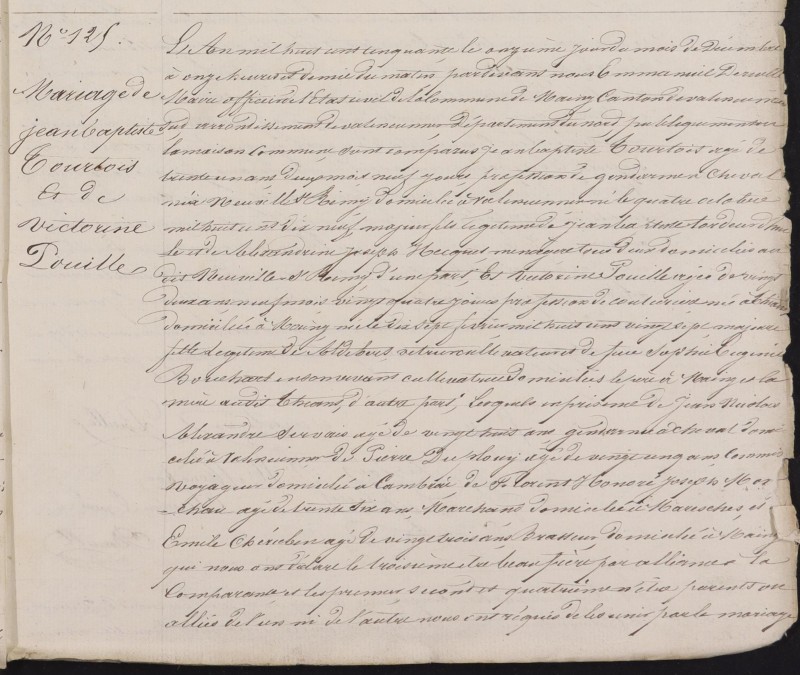 N° 125.
Mariage de
jean baptiste
Tourtois
Et de
Victorine
Pouille
Le An mil huit cent cinquante le onzième jour du mois de Décembre
à onze heures et demie du matin pardevant nous Emmanuel
Maire officier de l'Etat civil de la Commune de Maing Canton de valenciennes
Sud arrondissement de valenciennes Département du nord, publiquement en
la maison Commune sont comparus jean baptiste Tourtois agé de
trente un ans deux mois neuf jours profession de gendarme à Cheval
né à Neuville St Rémy domicilié à valenciennes né le quatre octobre
mil huit cent dix neuf, majeur fils légitime de jean baptiste
et de Alexandrine joseph Hecquet menagère tous deux domiciliés au
dit Neuville St Remy d'une part, Et Victorine Pouille agée de vingt
ans neuf mois vingt quatre jours profession de couturière née à thians
domiciliée à Maing née le dix sept fevrier mil huit cent vingt sept majeure
fille légitime de cultivateur et de feue Sophie Eugénie
en son vivant cultivatrice domiciliés le père à Maing et la
mère audit thians, d'autre part, Lesquels en présence de Jean Nicolas
Alexandre Servais agé de vingt huit ans gendarme à cheval domi
cilié à Valenciennes de Pierre agé de vingt cinq ans Commis
Voyageur domicilié à Cambrai de Florent Honoré joseph
agé de trente six ans Marchand domicilié à Maresches, et
Emile agé de vingt trois ans Brasseur domicilié à Maing
qui nous ont déclaré le troisième être beau frère par alliance à la
Comparante et les premier second et quatrième n'être parents ou
alliés de l'un ni de l'autre nous ont réquis de les unir par le mariage